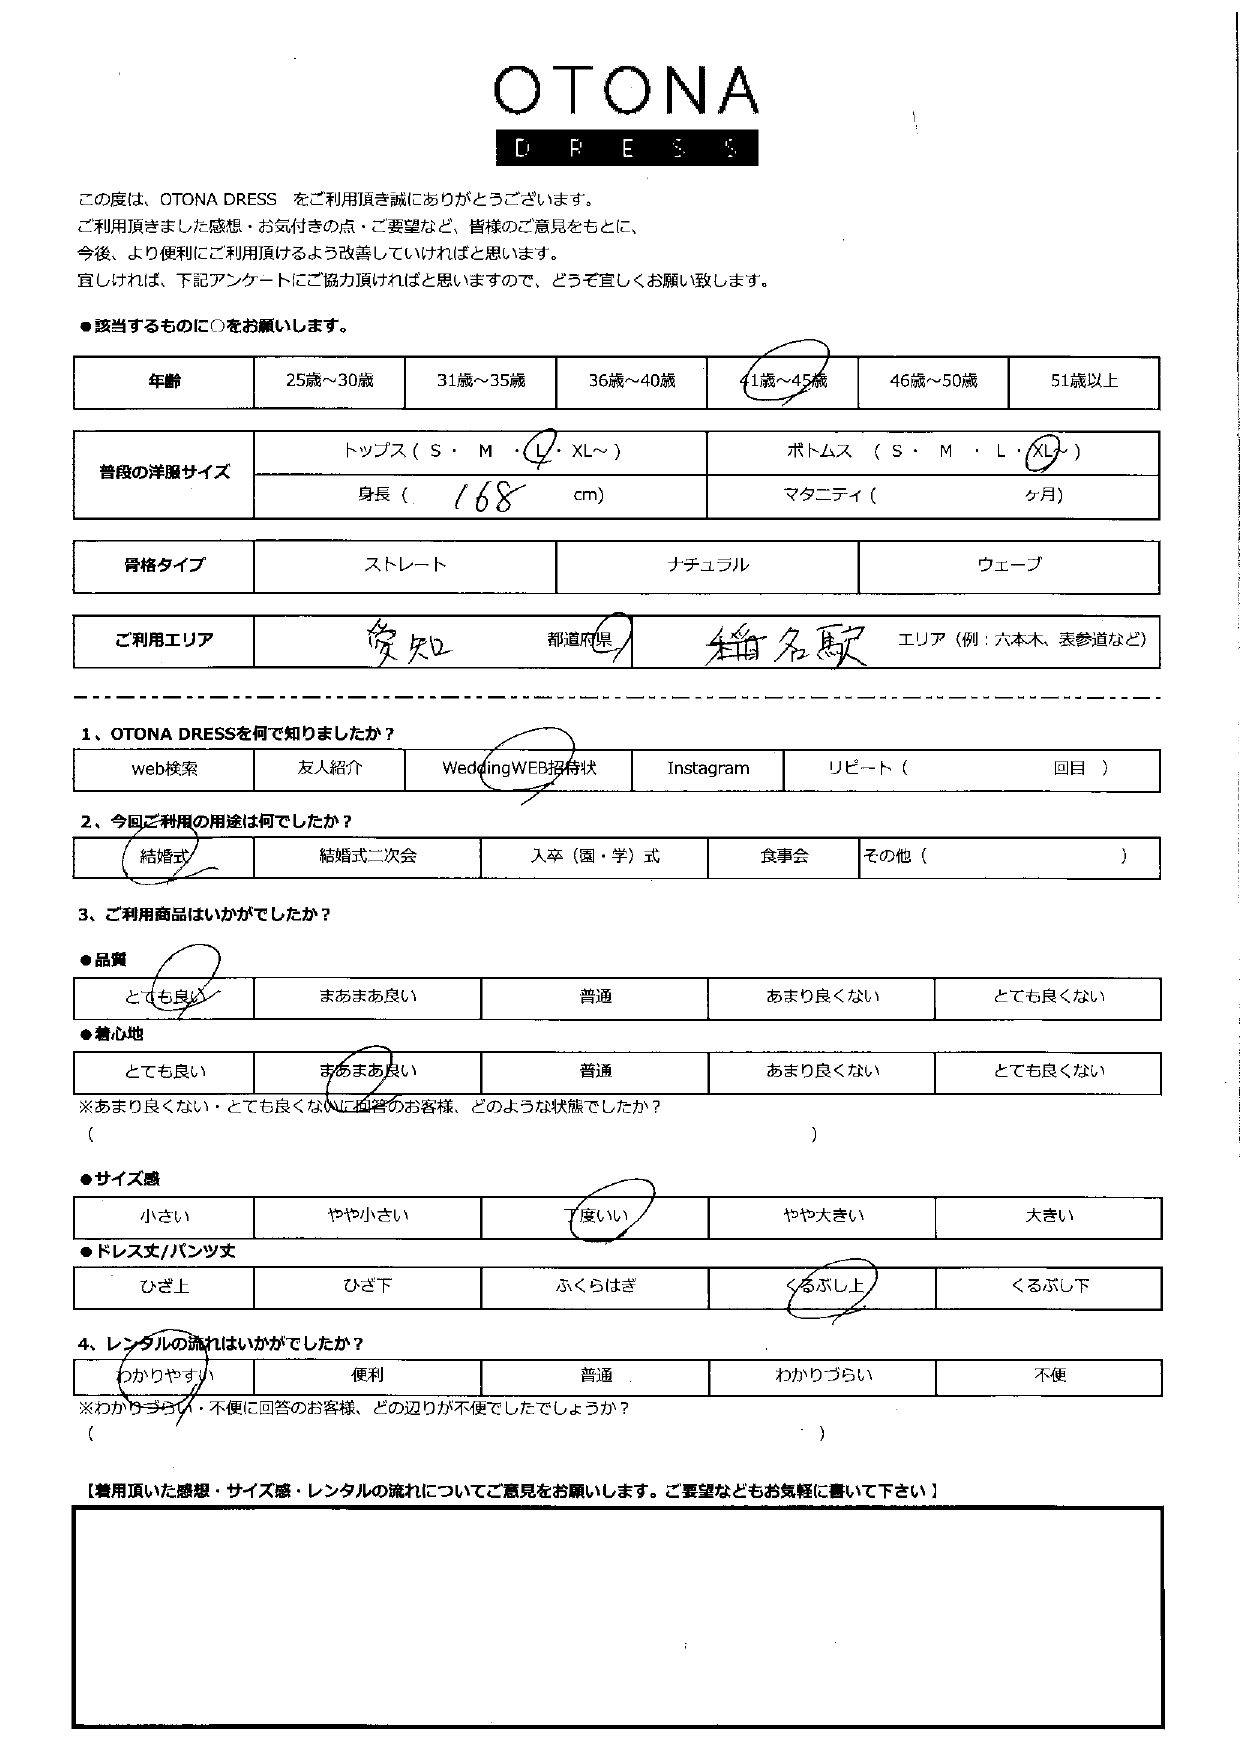 OTONA
DRESS
この度は、OTONA DRESS をご利用頂き誠にありがとうございます。
ご利用頂きました感想・お気付きの点・ご要望など、皆様のご意見をもとに、
今後、より便利にご利用頂けるよう改善していければと思います。
宜しければ、下記アンケートにご協力頂ければと思いますので、どうぞ宜しくお願い致します。
●該当するものに○をお願いします。
年齢 25歳～30歳 31歳～35歳 36歳～40歳 41歳～45歳 46歳～50歳 51歳以上
普段の洋服サイズ トップス ( S ・ M ・ L ・ XL～ ) ボトムス ( S ・ M ・ L ・ XL～ )
身長 ( 168 cm) マタニティ ( ヶ月)
骨格タイプ ストレート ナチュラル ウェーブ
ご利用エリア 愛知 都道府県 名駅 エリア（例：六本木、表参道など）
1、OTONA DRESSを何で知りましたか？
web検索 友人紹介 WeddingWEB招待状 Instagram リピート ( 回目 )
2、今回ご利用の用途は何でしたか？
結婚式 結婚式二次会 入卒（園・学）式 食事会 その他 ( )
3、ご利用商品はいかがでしたか？
●品質
とても良い まあまあ良い 普通 あまり良くない とても良くない
●着心地
とても良い まあまあ良い 普通 あまり良くない とても良くない
※あまり良くない・とても良くないに回答のお客様、どのような状態でしたか？
( )
●サイズ感
小さい やや小さい 丁度いい やや大きい 大きい
●ドレス丈/パンツ丈
ひざ上 ひざ下 ふくらはぎ くるぶし上 くるぶし下
4、レンタルの流れはいかがでしたか？
わかりやすい 便利 普通 わかりづらい 不便
※わかりづらい・不便に回答のお客様、どの辺りが不便でしたでしょうか？
( )
【着用頂いた感想・サイズ感・レンタルの流れについてご意見をお願いします。ご要望などもお気軽に書いて下さい】